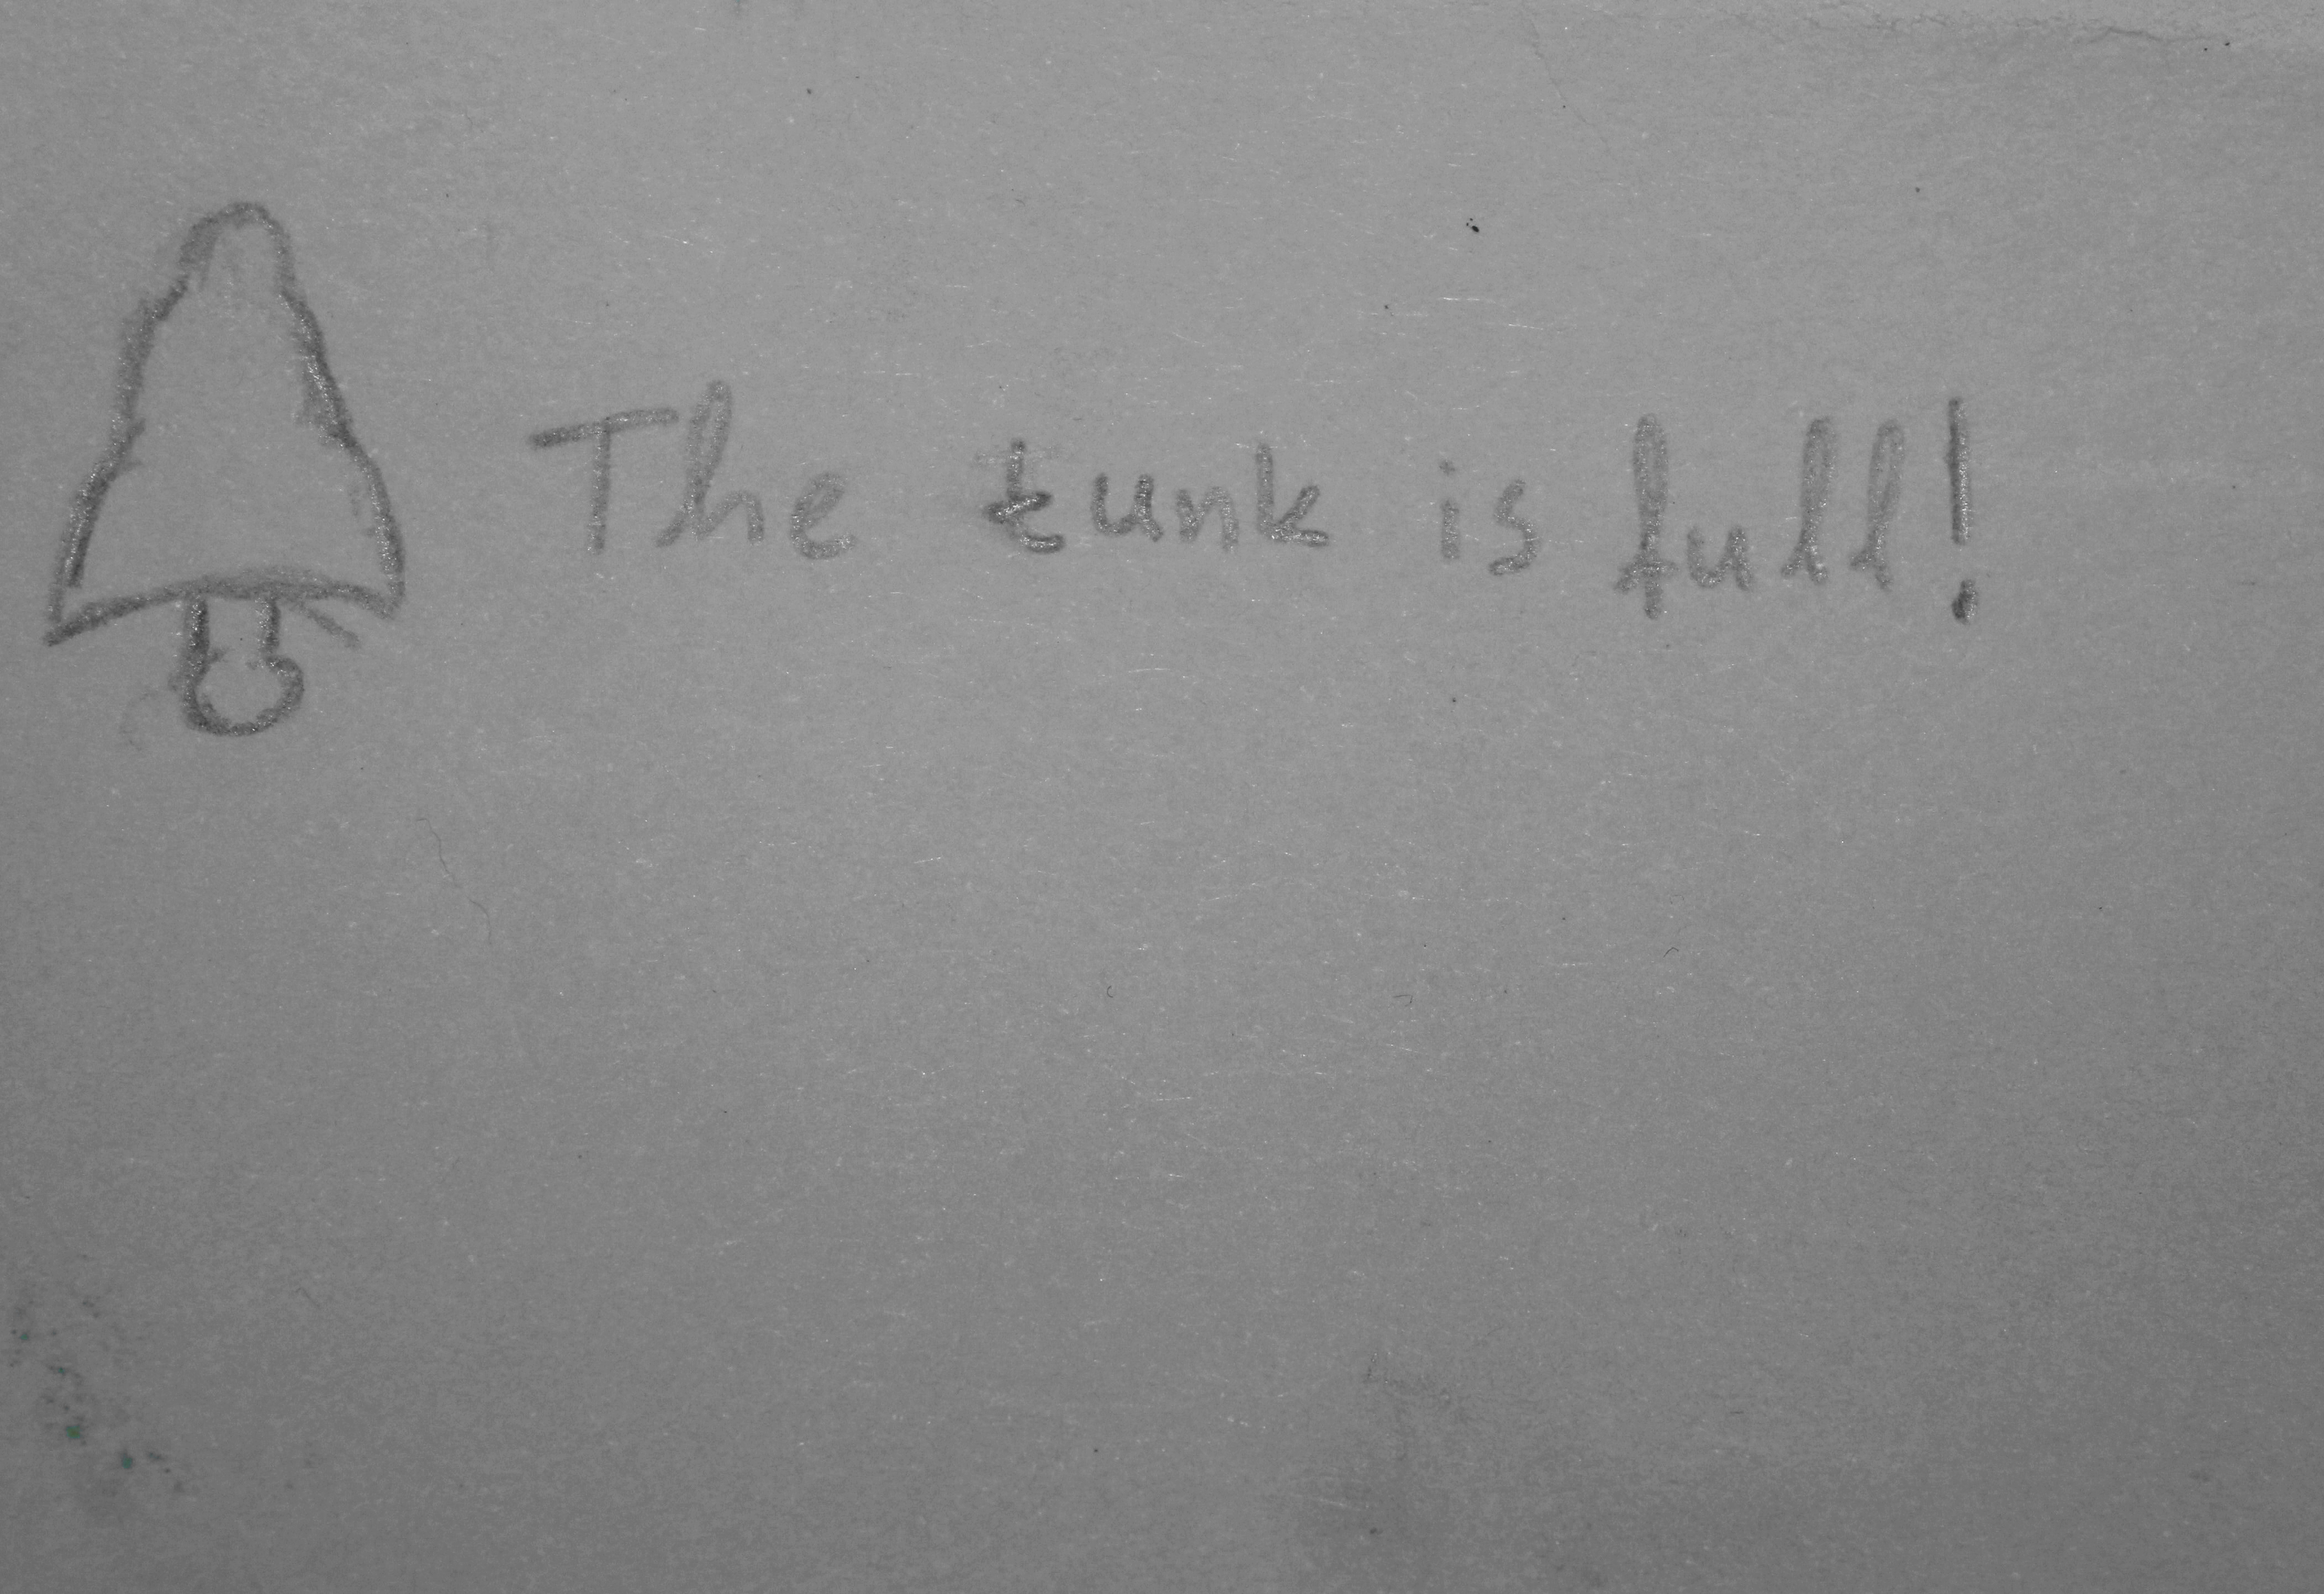 The tunk is full!